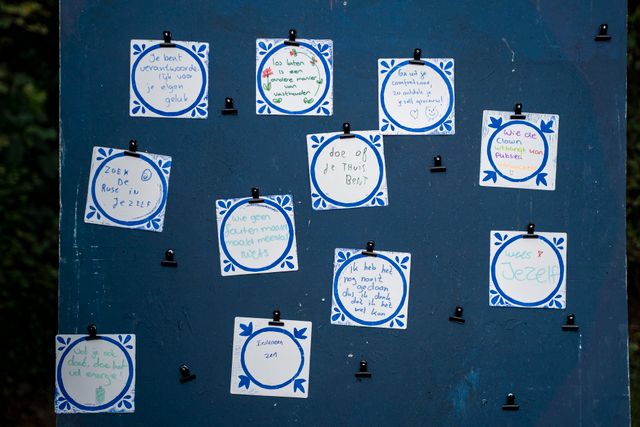 Je bent
verantwoorde
lijk voor
je eigen
geluk
los laten
is een
andere manier
van
vasthouden
Ga uit je
comfortzone,
zo ontdek je
jezelf opnieuw!
Wie de
Clown
uithangt van
Publiek
doe of
Je THUIS
BENT
ZOEK
DE
RUST IN
JEZELF
Wie geen
fouten maakt
maakt meestal
niets
ik heb het
nog nooit
gedaan
dus ik denk
dat ik het
wel kan
wees
Jezelf
Wat je ook
doet, doe het
vol energie!
Iedereen
zen